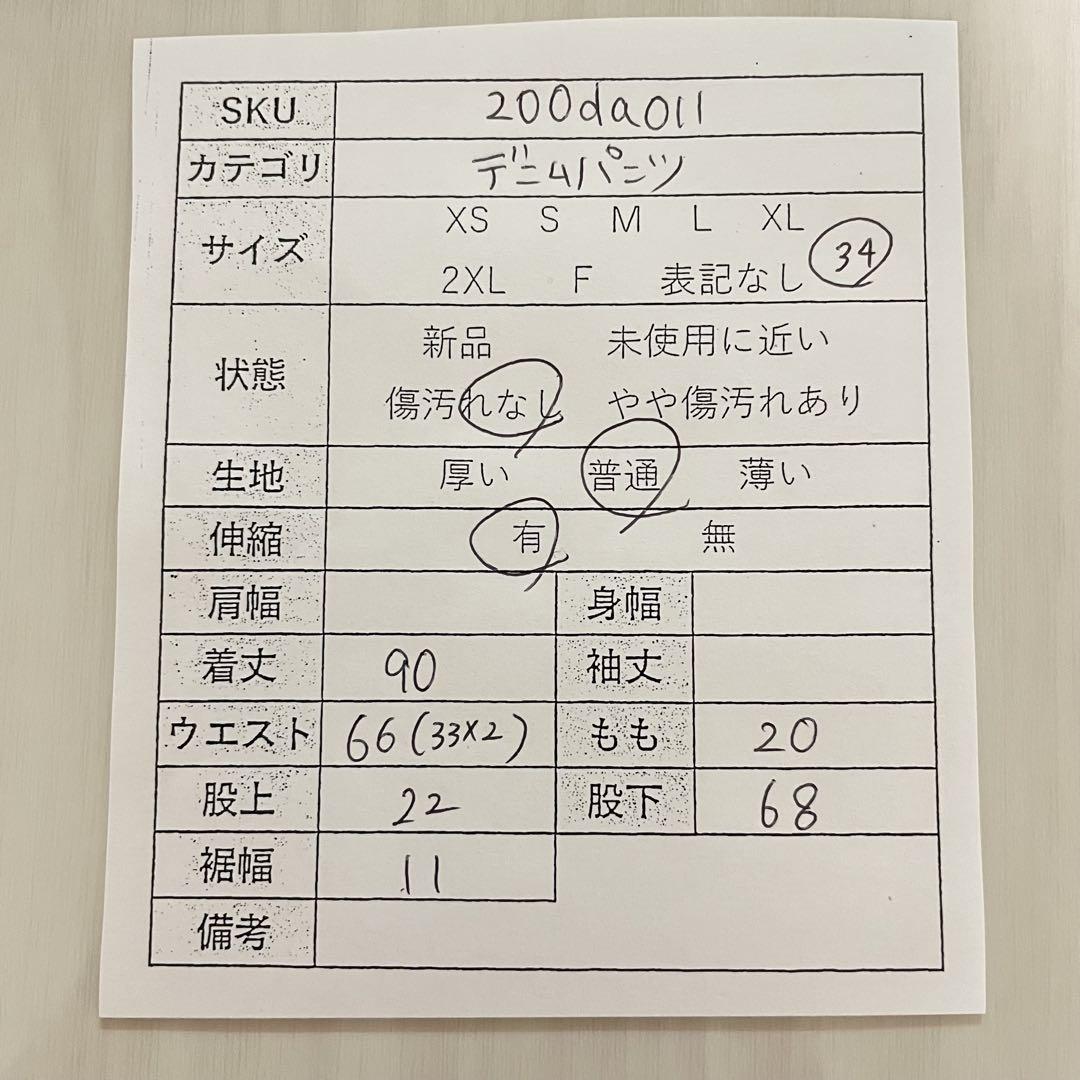 SKU 200da011
カテゴリ デニムパンツ
サイズ XS S M L XL
2XL F 表記なし 34
状態 新品 未使用に近い
傷汚れなし やや傷汚れあり
生地 厚い 普通 薄い
伸縮 有 無
肩幅 身幅
着丈 90 袖丈
ウエスト 66(33×2) もも 20
股上 22 股下 68
裾幅 11
備考